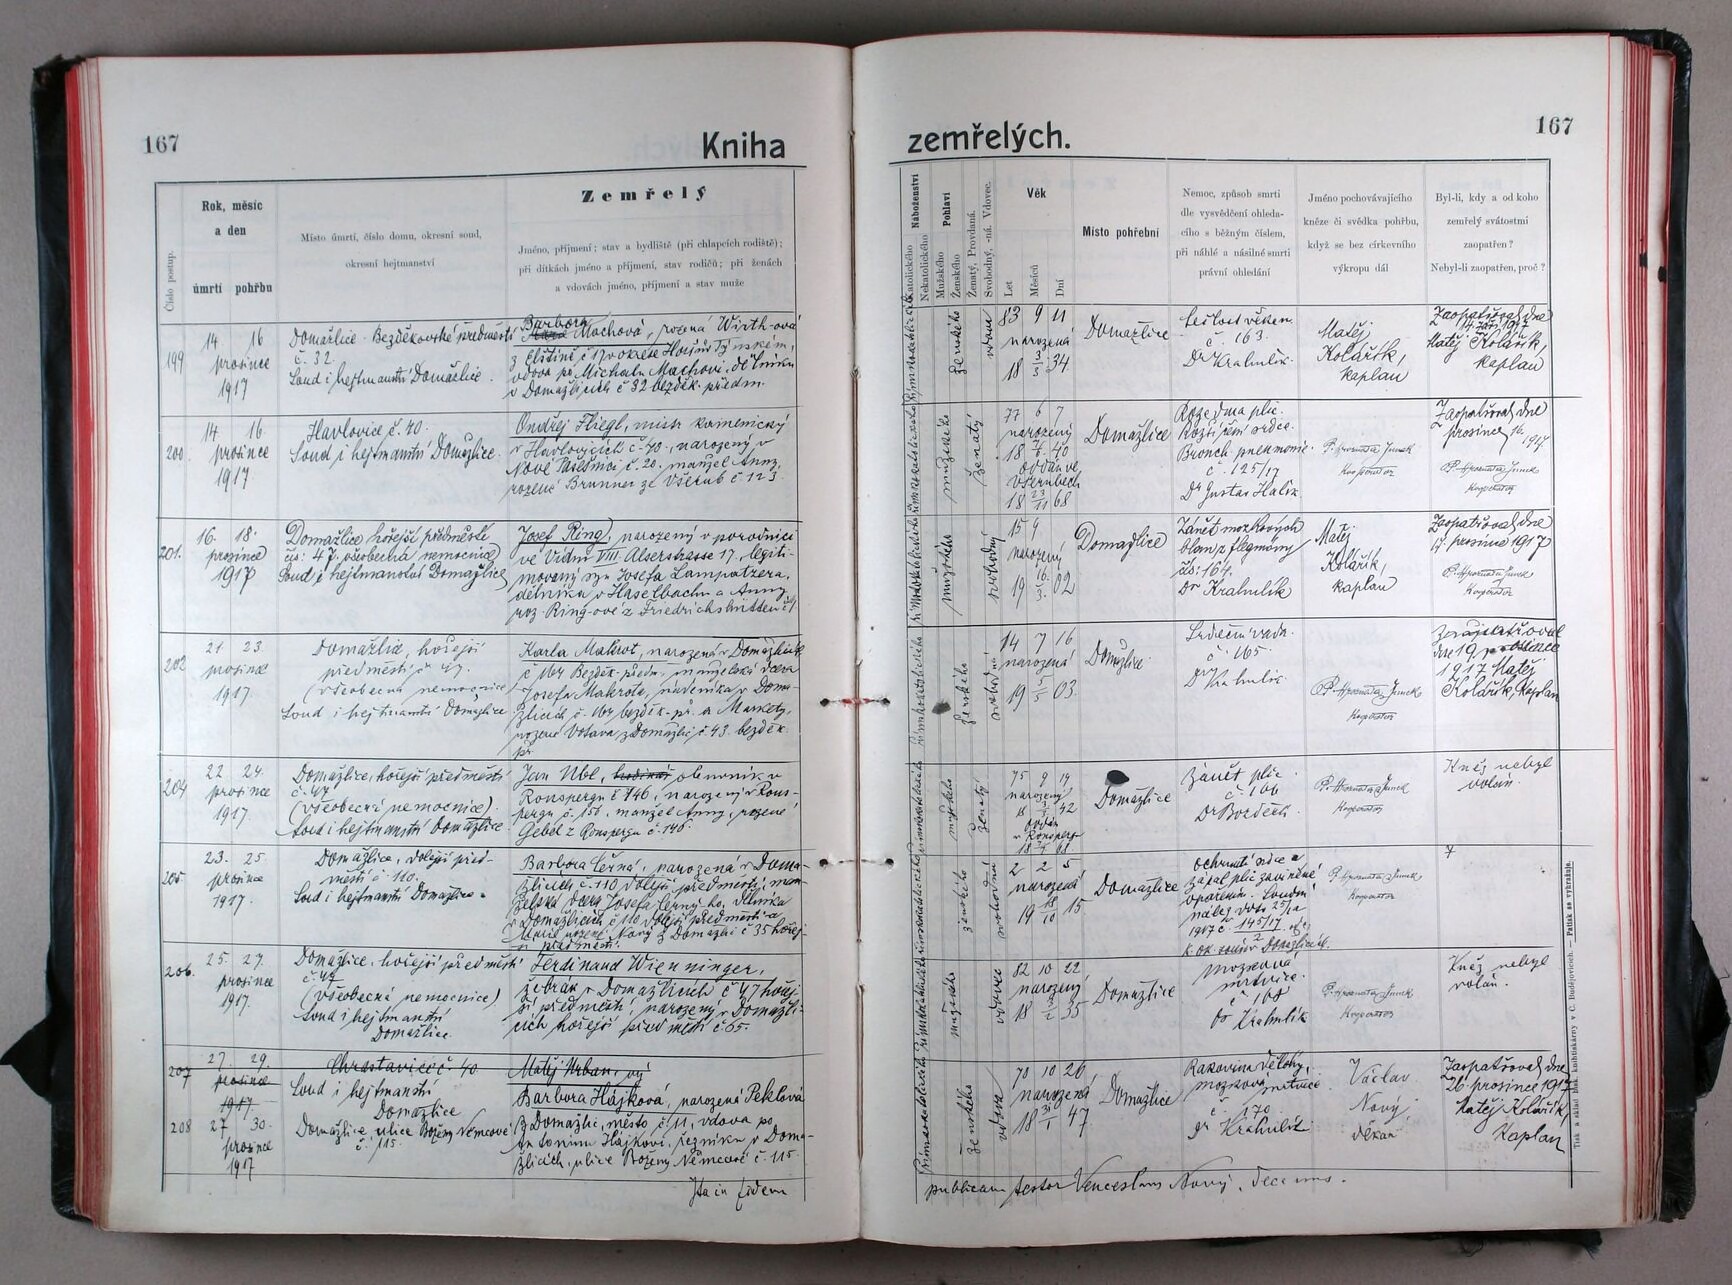 167
Kniha
zemřelých.
167
Číslo postup.
Rok, měsíc
a den
úmrtí pohřbu
Místo úmrtí, číslo domu, okresní soud,
okresní hejtmanství
Zemřelý
Jméno, příjmení; stav a bydliště (při chlapcích rodiště);
při dítkách jméno a příjmení, stav rodičů; při ženách
a vdovách jméno, příjmení a stav muže
Náboženství
Katolického
Nekatolického
Pohlaví
Mužského
Ženského
Ženatý, Provdaná.
Svobodný, -ná. Vdovec.
Věk
Let
Měsíců
Dní
Místo pohřební
Nemoc, způsob smrti
dle vysvědčení ohleda-
cího s běžným číslem,
při náhlé a násilné smrti
právní ohledání
Jméno pochovávajícího
kněze či svědka pohřbu,
když se bez církevního
výkropu dál
Byl-li, kdy a od koho
zemřelý svátostmi
zaopatřen?
Nebyl-li zaopatřen, proč?
199
14 16
prosince
1917
Domažlice Bezděkovské předměstí
č. 32.
Soud i hejtmanství Domažlice.
Barbora
Machová, rozená Wirth-ová
vdova po Michalu Machovi, dělníku
v Domažlicích č 32 bezděk. předm.
ženského
vdova
83 9 11
narozená
18 3/3 34
Domažlice
Sešlost věkem.
č. 163.
Dr Kralmlík.
Matěj
Kolářík,
kaplan
Zaopatřoval dne
14 září 1917
Matěj Kolářík,
kaplan
200.
14 16
prosince
1917.
Havlovice č. 40.
Soud i hejtmanství Domažlice.
Ondřej Fliegl, mistr kamenický
v Havlovicích č. 40., narozený v
Nové Pasečnici č. 20., manžel Anny,
rozené Brunner ze Všerub č. 123.
mužského
ženatý
77 6 7
narozený
18 7/6 40
oddán ve
Všerubech
18 23/11 68
Domažlice
Rozedma plic.
Rozšíření srdce.
Bronch. pneumonie.
č. 125/17
Dr Gustav Halík
P. Hroznata Junek
Kooperator
Zaopatřoval dne
prosince 16. 1917.
P. Hroznata Junek
Kooperator
201.
16. 18.
prosince
1917
Domažlice hořejší předměstí
čís: 47, všeobecná nemocnice
Soud i hejtmanství Domažlice
Josef Ring, narozený v porodnici
ve Vídni VIII Alserstrasse 17., legiti-
movaný syn Josefa Lampatzera,
dělníka v Haselbachu a Anny
roz. Ring-ové z Friedrichshütten č 1.
mužského
svobodný
15 9
narozený
19 16/3 02
Domažlice
Zánět mozkových
blan z flegmóny
čís: 164.
Dr Kralmlík
Matěj
Kolářík,
kaplan
Zaopatřoval dne
17. prosince 1917
P. Hroznata Junek
Kooperator
202
21 23.
prosince
1917.
Domažlice, hořejší
předměstí č 47.
(všeobecná nemocnice)
Soud i hejtmanství Domažlice
Karla Makrot, narozená v Domažlicích
č 164 Bezděk. předm., manželská dcera
Josefa Makrota, v Doma-
žlicích č. 164 bezděk. př. a Markety,
rozené Votava z Domažlic č 43. bezděk.
př.
ženského
svobodná
14 7 16
narozená
19 5/5 03.
Domažlice.
Srdeční vada.
č. 165.
Dr Kralmlík
P. Hroznata Junek
Kooperator
Zaopatřoval
dne 19 prosince
1917 Matěj
Kolářík, kaplan
204
22 24.
prosince
1917.
Domažlice, hořejší předměstí
č. 47
(všeobecná nemocnice).
Soud i hejtmanství Domažlice.
Jan Ubl, hodinář obuvník v
Ronspergu č 146, narozený v Rons-
pergu č. 156, manžel Anny, rozené
Gebel z Ronspergu č. 140.
mužského
ženatý
75 9 19
narozený
18 3/3 42
oddán
v Ronsperg
Domažlice
Zánět plic.
č. 166
Dr Bozděch.
P. Hroznata Junek
Kooperator
Kněz nebyl
volán.
205
23. 25.
prosince
1917.
Domažlice, dolejší před-
městí č 110.
Soud i hejtmanství Domažlice.
Barbora Černá, narozená v Doma-
žlicích č. 110 dolejší předměstí, man-
želská dcera Josefa Černého, dělníka
v Domažlicích č 110. dolejší předměstí a
Marie rozené Nový z Domažlic č 35 hořej-
ší předměstí.
ženského
svobodná
2 2 5
narozená
19 18/10 15
Domažlice
Ochrnutí srdce a
zápal plic zaviněné
opařením. Soudní
nález dto 25/12
1917 č. 145/17
P. Hroznata Junek
Kooperator
206.
25. 27.
prosince
1917.
Domažlice, hořejší předměstí
č. 47
(všeobecná nemocnice)
Soud i hejtmanství
Domažlice.
Ferdinand Wienninger,
žebrák v Domažlicích č 47 hořej-
ší předměstí, narozený v Domažli-
cích hořejší předměstí č 65.
mužského
vdovec
82 10 22
narozený
18 3/2 35
Domažlice
Mozková
mrtvice.
č 168
Dr Kralmlík
P. Hroznata Junek
Kooperator
Kněz nebyl
volán.
207
27. 29.
prosince
1917
Chrastavice č. 40
Soud i hejtmanství
Domažlice
Matěj Urban, vý
208
27 30.
prosince
1917
Domažlice ulice Boženy Němcové
č. 115.
Barbora Hájková, narozená Peklová
z Domažlic, město č 11, vdova po
Antonínu Hájkovi, řezníku v Doma-
žlicích, ulice Boženy Němcové č. 115.
ženského
vdova
70 10 26
narozená
18 31/1 47
Domažlice
Rakovina dělohy,
mozková mrtvice
č. 170
Dr Kralmlík
Václav
Nový
děkan
Zaopatřoval dne
26 prosince 1917
Matěj Kolářík
Kaplan
Ita in fidem
publicam testor Venceslaus Nový, Decanus.
Tisk a sklad knihtiskárny v Č. Budějovicích. — Patisk se vyhražuje.